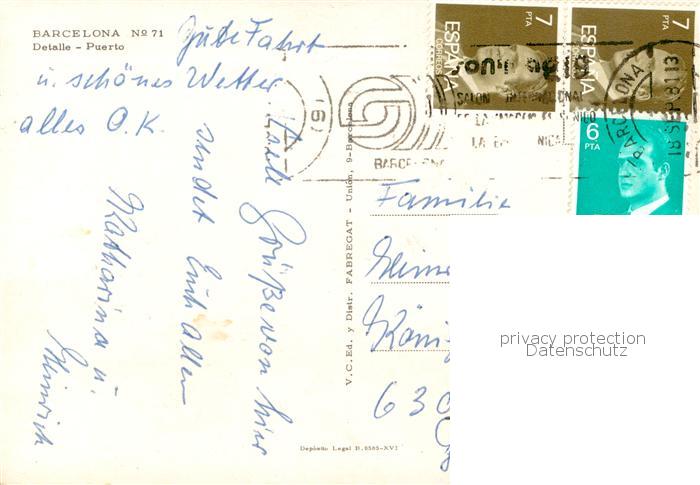 BARCELONA Nº 71
Detalle - Puerto
Gute Fahrt
u. schönes Wetter
alles O.K.
Grüße von hier
sendet Euch allen
Katharina u.
Hinrich
V.C. Ed. y Distr. FABREGAT - Unión, 9-Barcelona
Depósito Legal B. 8585-XVI
7
PTA
ESPAÑA
CORREOS
7
PTA
ESPAÑA
6
PTA
SALON INTERNACIONAL
BARCELONA
BARCELONA
Familie
630
privacy protection
Datenschutz